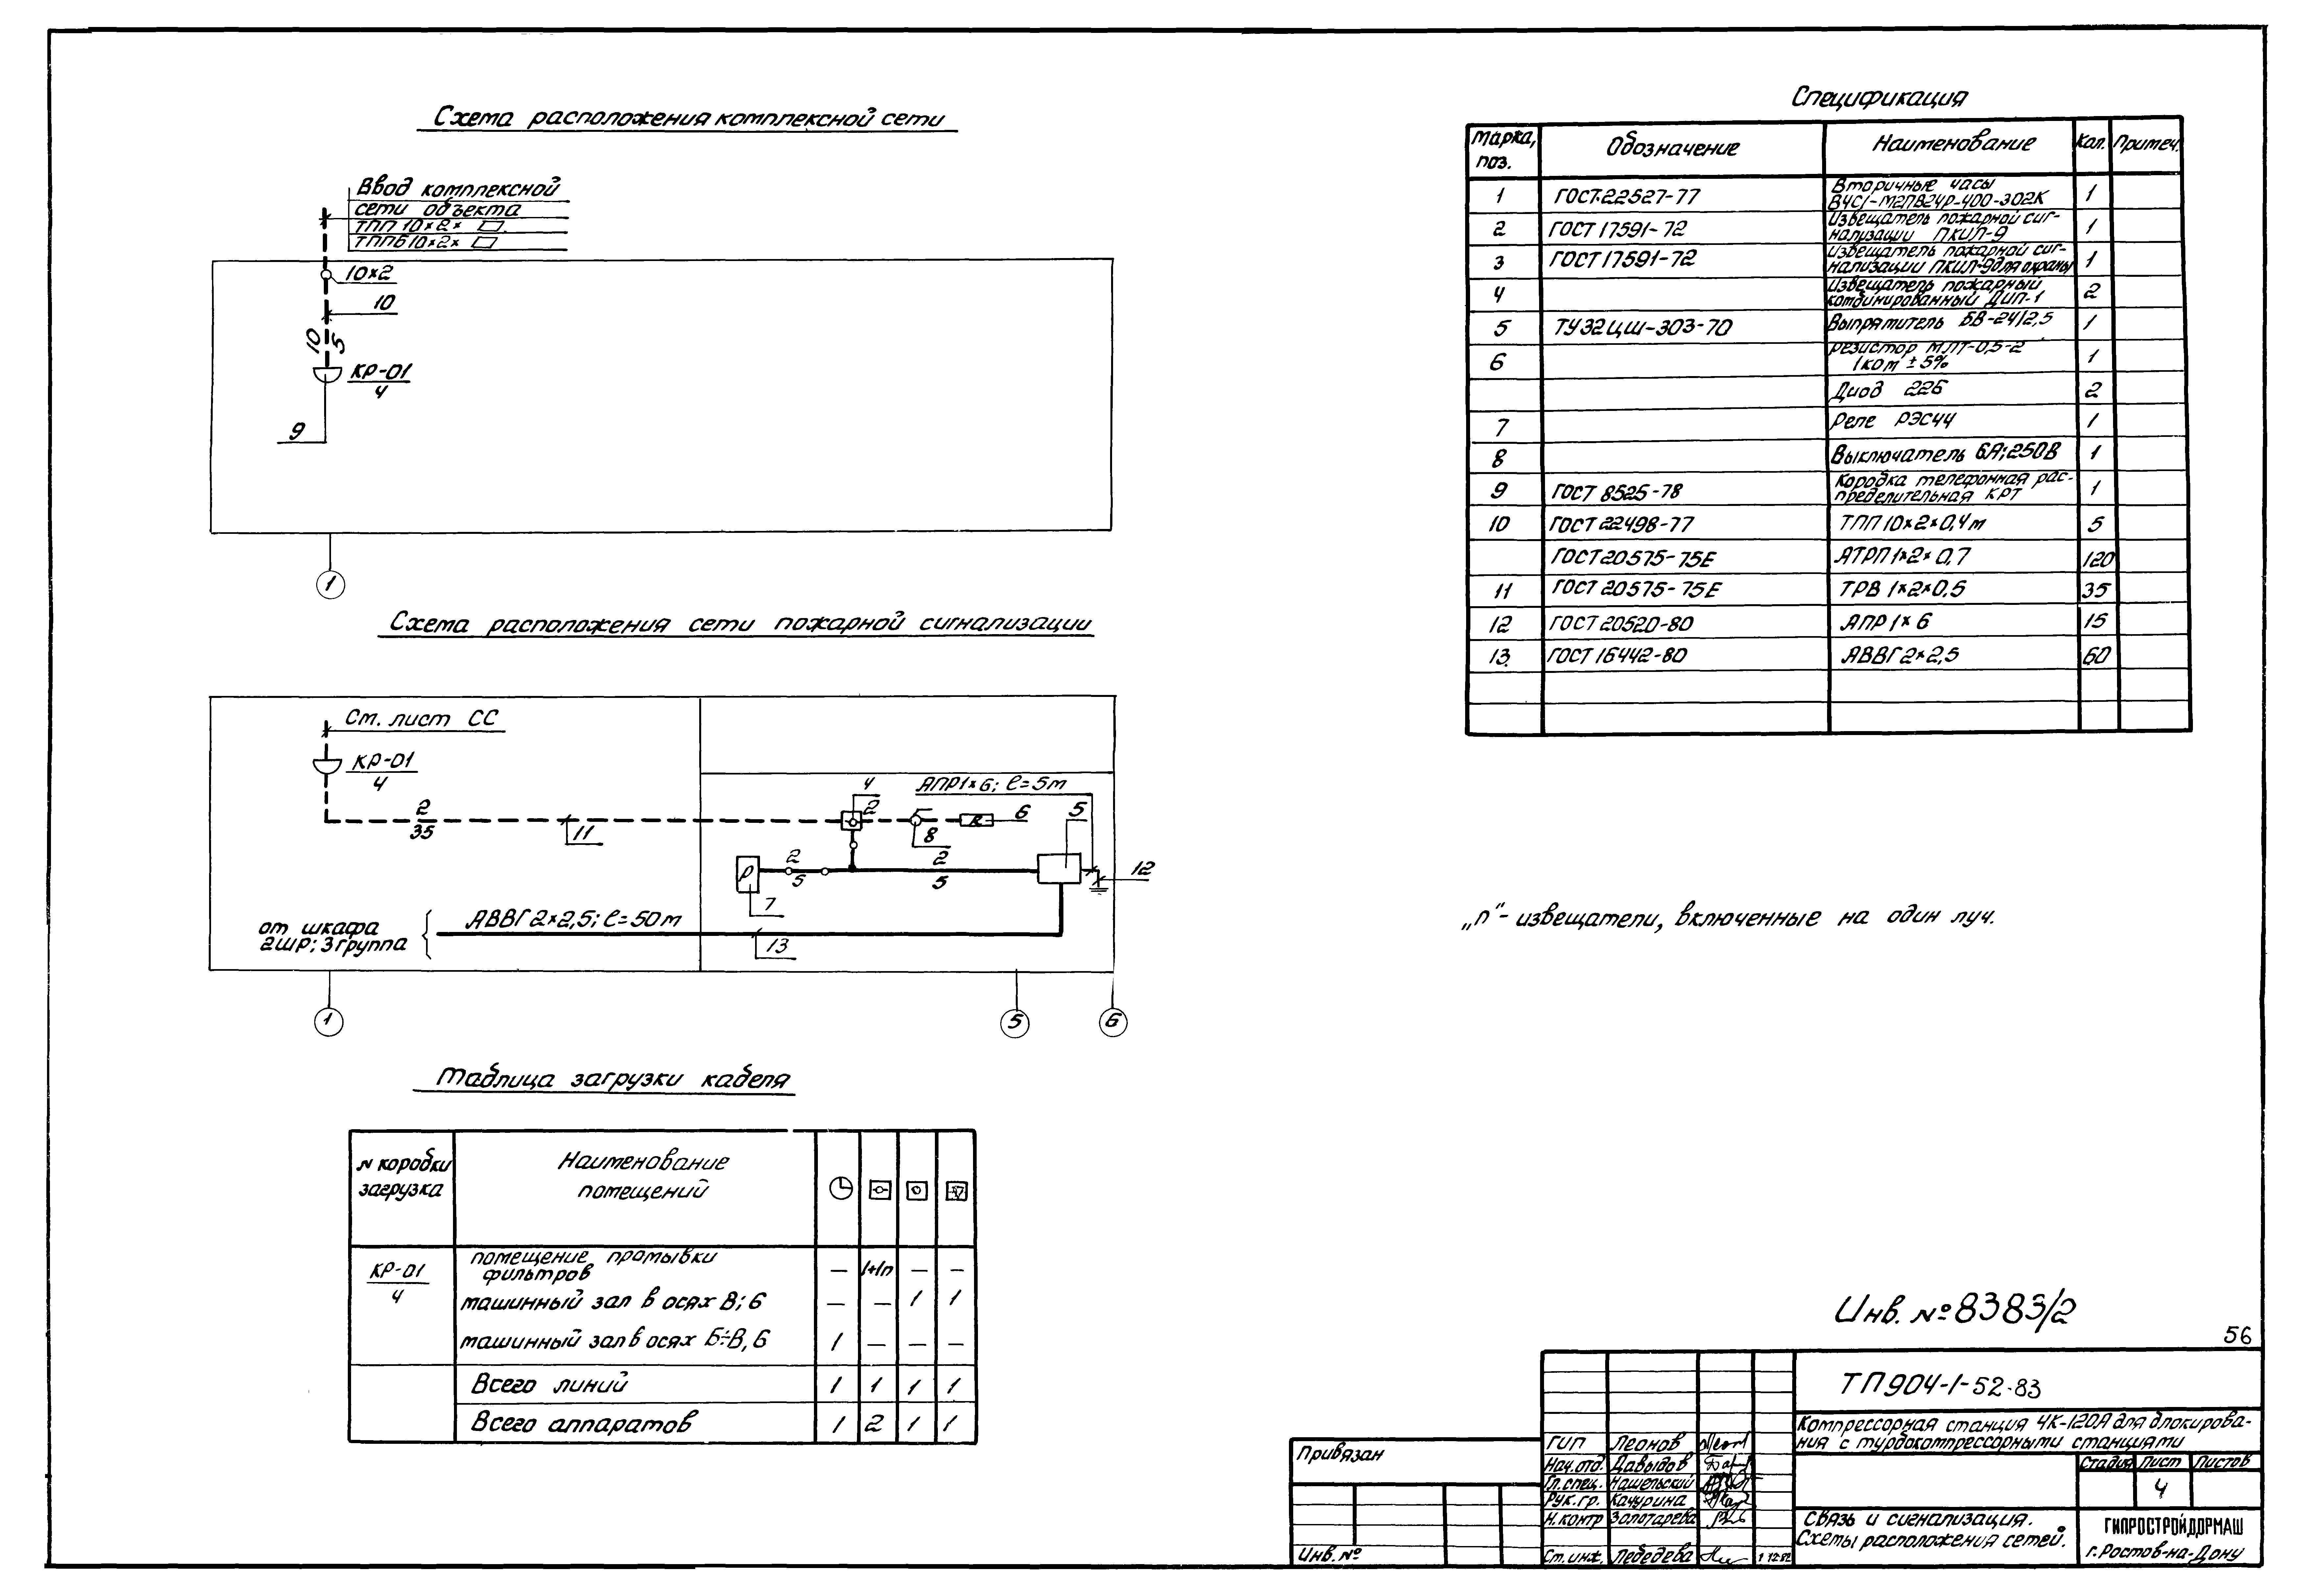 Схема расположения комплексной сети
Ввод комплексной
сети объекта
ТПП 10×2×
ТППБ 10×2×
10×2
10
10
5
КР-01
4
9
1
Схема расположения сети пожарной сигнализации
См. лист СС
КР-01
4
2
35
11
4
2
АПР1×6; ℓ=5м
8
6
5
Р
7
2
5
2
5
12
от шкафа
2ШР; 3 группа
АВВГ 2×2,5; ℓ=50м
13
1
5
6
Таблица загрузки кабеля
№ коробки
загрузка
Наименование
помещений
КР-01
4
помещение промывки
фильтров
— 1+1п — —
машинный зал в осях В; 6 — — 1 1
машинный зал в осях Б÷В, 6 1 — — —
Всего линий 1 1 1 1
Всего аппаратов 1 2 1 1
Спецификация
Марка, поз. Обозначение Наименование Кол. Примеч.
1 ГОСТ 22527-77 Вторичные часы
ВЧС1-М2ПВ24Р-400-302К 1
2 ГОСТ 17591-72 Извещатель пожарной сиг-
нализации ПКИЛ-9 1
3 ГОСТ 17591-72 Извещатель пожарной сиг-
нализации ПКИЛ-9 для охраны 1
4 Извещатель пожарный
комбинированный ДИП-1 2
5 ТУ32ЦШ-303-70 Выпрямитель БВ-24/2,5 1
6 резистор МЛТ-0,5-2
1ком ±5% 1
Диод 226 2
7 Реле РЭС44 1
8 Выключатель 6А; 250В 1
9 ГОСТ 8525-78 Коробка телефонная рас-
пределительная КРТ 1
10 ГОСТ 22498-77 ТПП 10×2×0,4 м 5
ГОСТ 20575-75Е АТРП 1×2×0,7 120
11 ГОСТ 20575-75Е ТРВ 1×2×0,5 35
12 ГОСТ 20520-80 АПР 1×6 15
13. ГОСТ 16442-80 АВВГ 2×2,5 60
„п“- извещатели, включенные на один луч.
Инв. №8383/2
56
ТП904-1-52-83
Компрессорная станция 4К-120А для блокирова-
ния с турбокомпрессорными станциями
Стадия Лист Листов
4
Связь и сигнализация.
Схемы расположения сетей.
ГИПРОСТРОЙДОРМАШ
г. Ростов-на-Дону
ГИП Леонов
Нач.отд. Давыдов
Гл.спец. Нашельский
Рук.гр. Качурина
Н.контр Золотарева
Ст.инж. Лебедева
Привязан
Инв.№